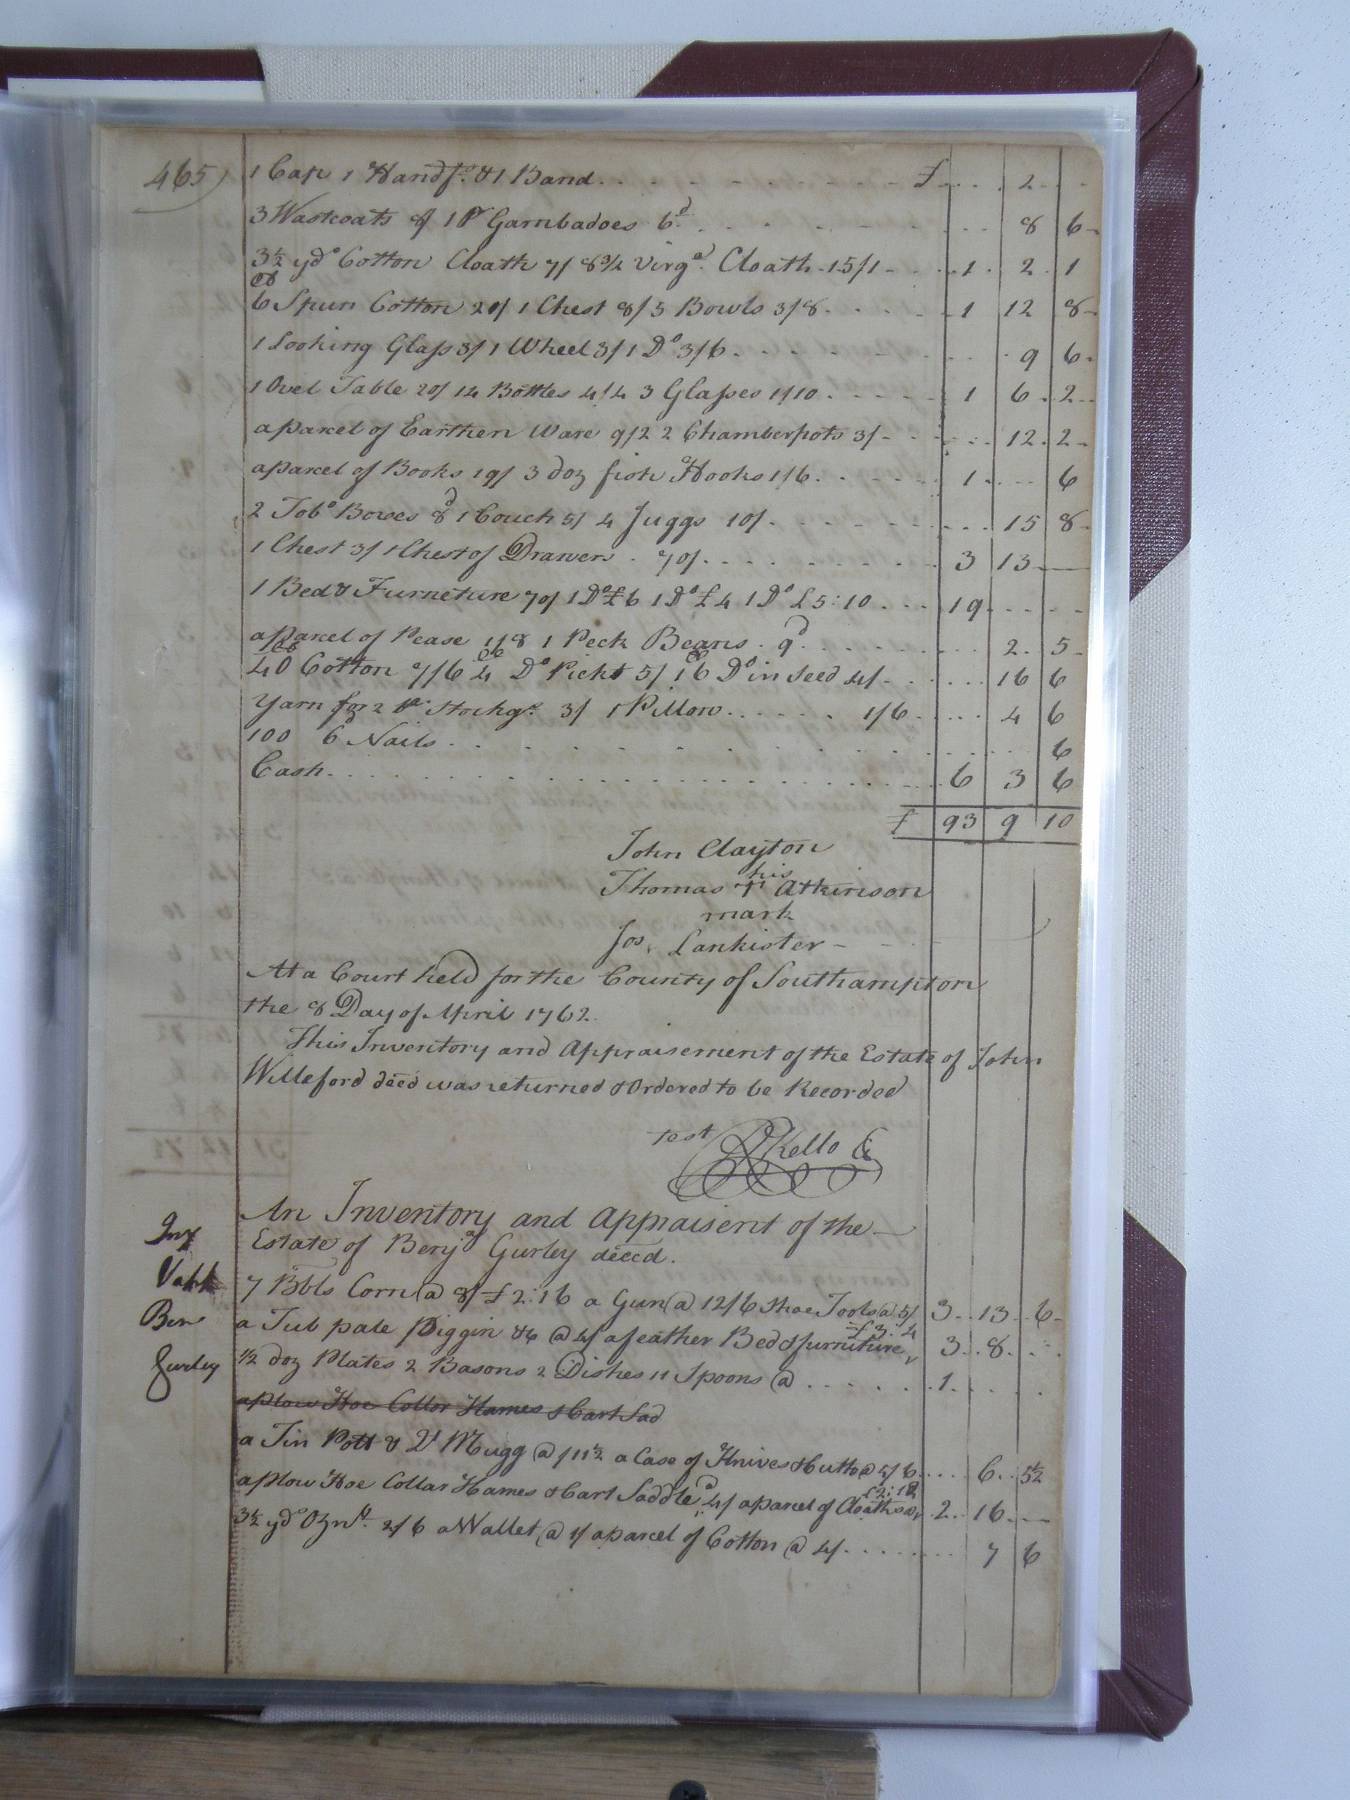 465)
1 Cap 1 Handf. & 1 Band . . . £ . . 2 . .
3 Wastcoats & 1 Pr Gambadoes 6d . . . 8 6
3½ yds Cotton Cloath 7/ 8¾ Virga. Cloath 15/1 . . 1 . 2 . 1
6 lb Spun Cotton 20/ 1 Chest 8/ 5 Bowls 3/8 . . . 1 12 8
1 Looking Glass 3/ 1 Wheel 3/ 1 Do 3/6 . . . 9 6
1 Ovel Table 20/ 14 Bottles 4/4 3 Glasses 1/10 . . . 1 6 2
a Parcel of Earthen Ware 9/2 2 Chamberpots 3/ . . . 12 2
a parcel of Books 19/ 3 doz fish Hooks 1/6 . . . 1 . . 6
2 Tobo Boxes 8d 1 Couch 5/ 4 Juggs 10/ . . . 15 8
1 Chest 3/ 1 Chest of Drawers . 70/ . . . 3 13
1 Bed & Furneture 70/ 1 Do £6 1 Do £4 1 Do £5:10 . . . 19 . .
a Parcel of Pease 1/8 1 Peck Beans . 9d . . . 2 5
40 lb Cotton 7/6 4 lb Do Pickt 5/ 16 lb Do in Seed 4/ . . . 16 6
Yarn for 2 pr Stockgs. 3/ 1 Pillow . . . 1/6 . . . 4 6
100 6d Nails . . . 6
Cash . . . 6 3 6
£ 93 9 10
John Clayton
his
Thomas T Atkinson
mark
Jos. Lankister
At a Court held for the County of Southampton
the 8 Day of April 1762.
This Inventory and Appraisement of the Estate of John
Willeford deced was returned & Ordered to be Recorded
Test RKello Cl
An Inventory and Appraisent of the
Estate of Benja Gurley deced.
Inv
Ben
Gurley
7 Bbls Corn @ 8/ £2:16 a Gun @ 12/6 Shoe Tools @ 5/ 3 . 13 . 6
a Tub pale Piggin &c @ 4/ a feather Bed & furniture £3:4 3 . 8 . .
½ doz Plates 2 Basons 2 Dishes 11 Spoons @ . . . 1 . . .
a Plow Hoe Collor Hames & Cart Sad
a Tin Pott & Qt Mugg @ /11½ a Case of Knives & Cutto @ 5/6 . . . 6 . 5½
a plow Hoe Collar Hames & Cart Saddle @ 4/ a parcel of Cloaths @ £2:12 . 2 . 16
3½ yds Oznb. 2/6 a Wallet @ 1/ a parcel of Cotton @ 4/ . . . 7 6